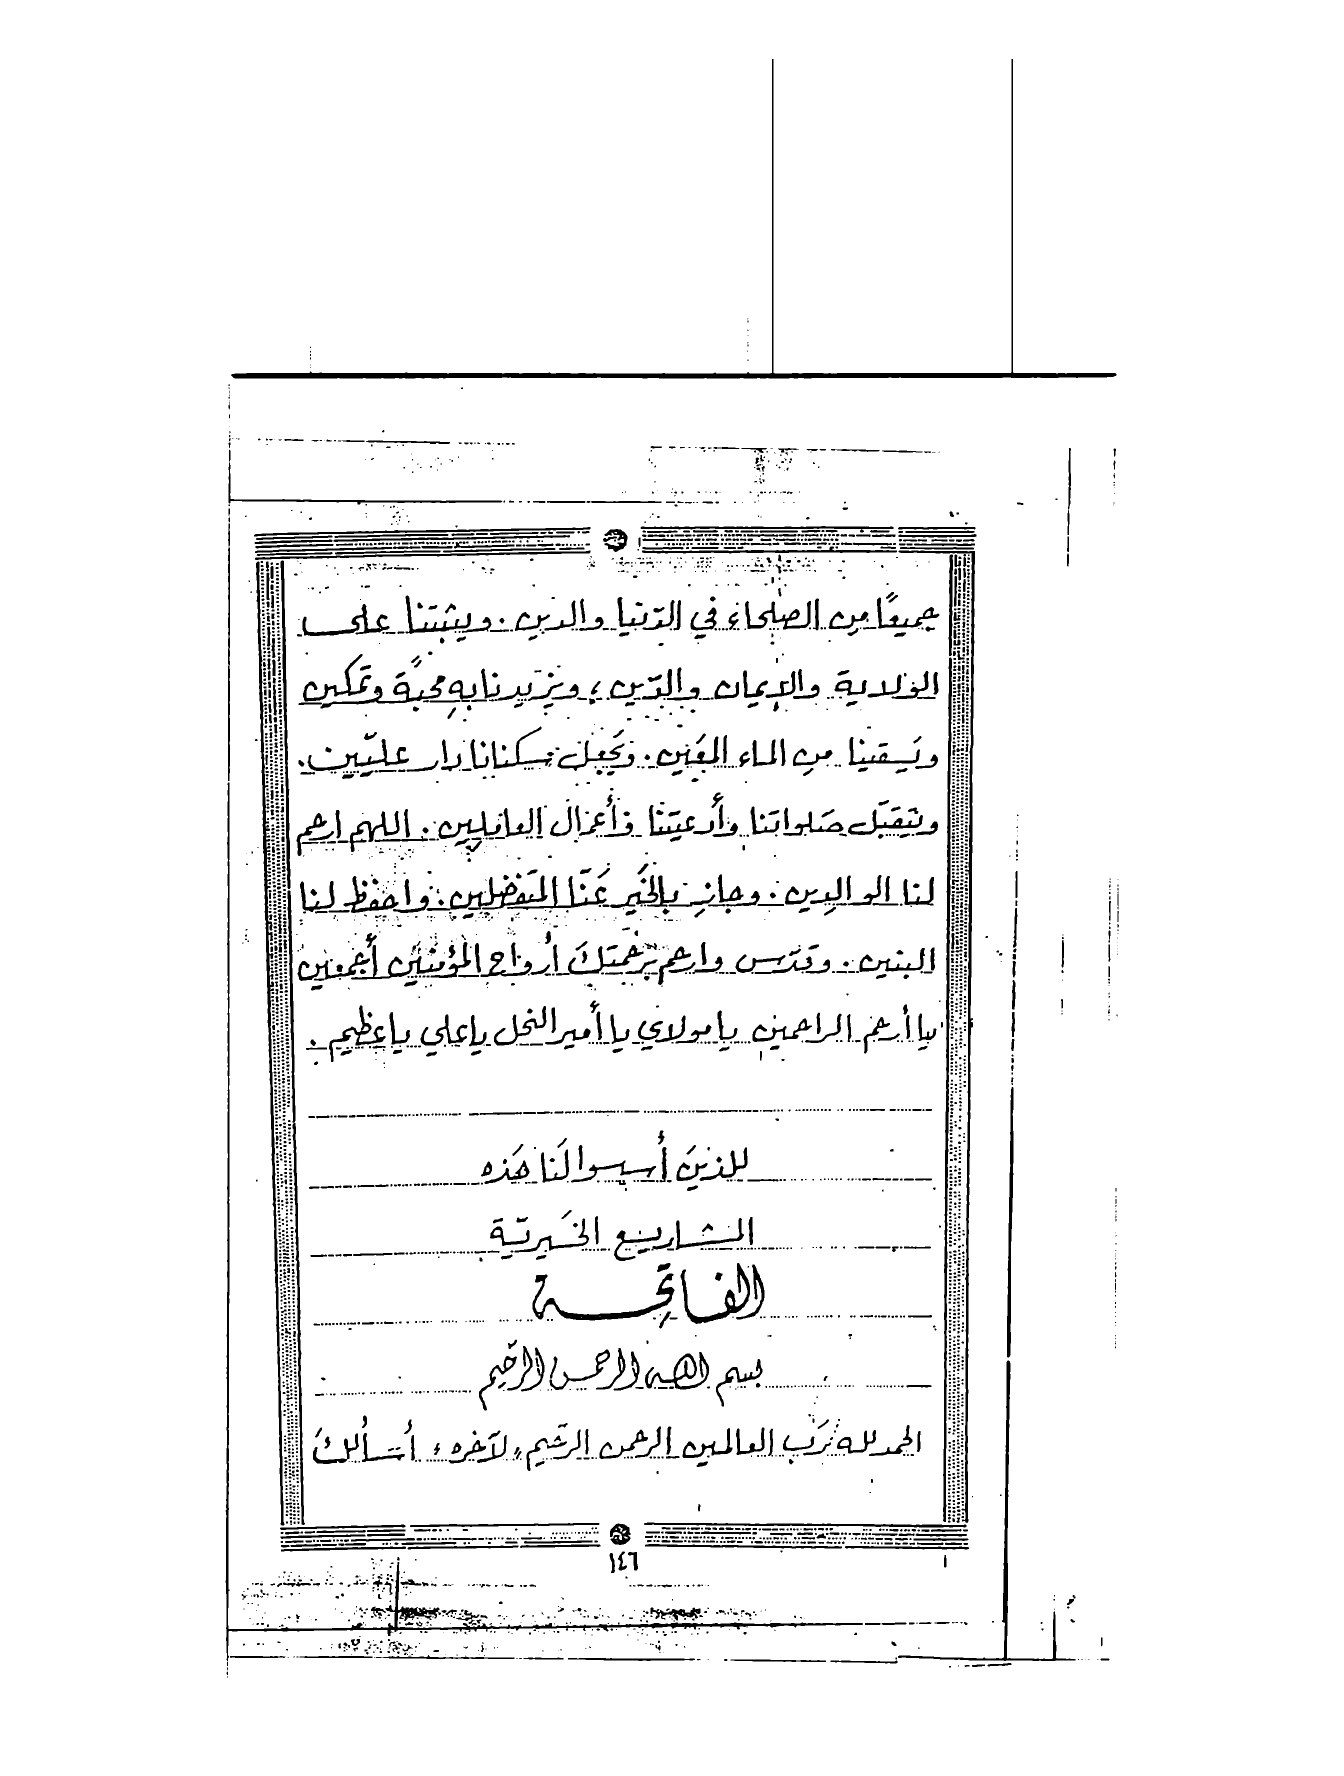 جميعًا من الصلحاء في الدّنيا والدين . ويثبتنا على
الولاية والإيمان والدّين ؛ ويزيدنا بهِ محبةً وتمكين
ويَسقينا من الماء المعَين . ويَجعل سكنانا دار عليّين .
ويتقبَل صَلواتنا وأدعيتنا وأعمال العاملين . اللهم ارحم
لنا الوالدِين . وجازِ بالخَير عَنّا المتَفضلين . واحفظ لنا
البنين . وقدّس وارحم برَحمتكَ أرواح المؤمنين أجمعين
يا أرحم الراحمين يا مولاي يا أمير النحل يا علي يا عظيم .
للذينَ أسسوا لَنا هَذه
المشاريع الخَيريّة
الفاتِحة
بسم الله الرحمن الرّحيم
الحمد لله رَب العالمين الرحمن الرحَيم ، لآخره ، أسألكَ
١٤٦